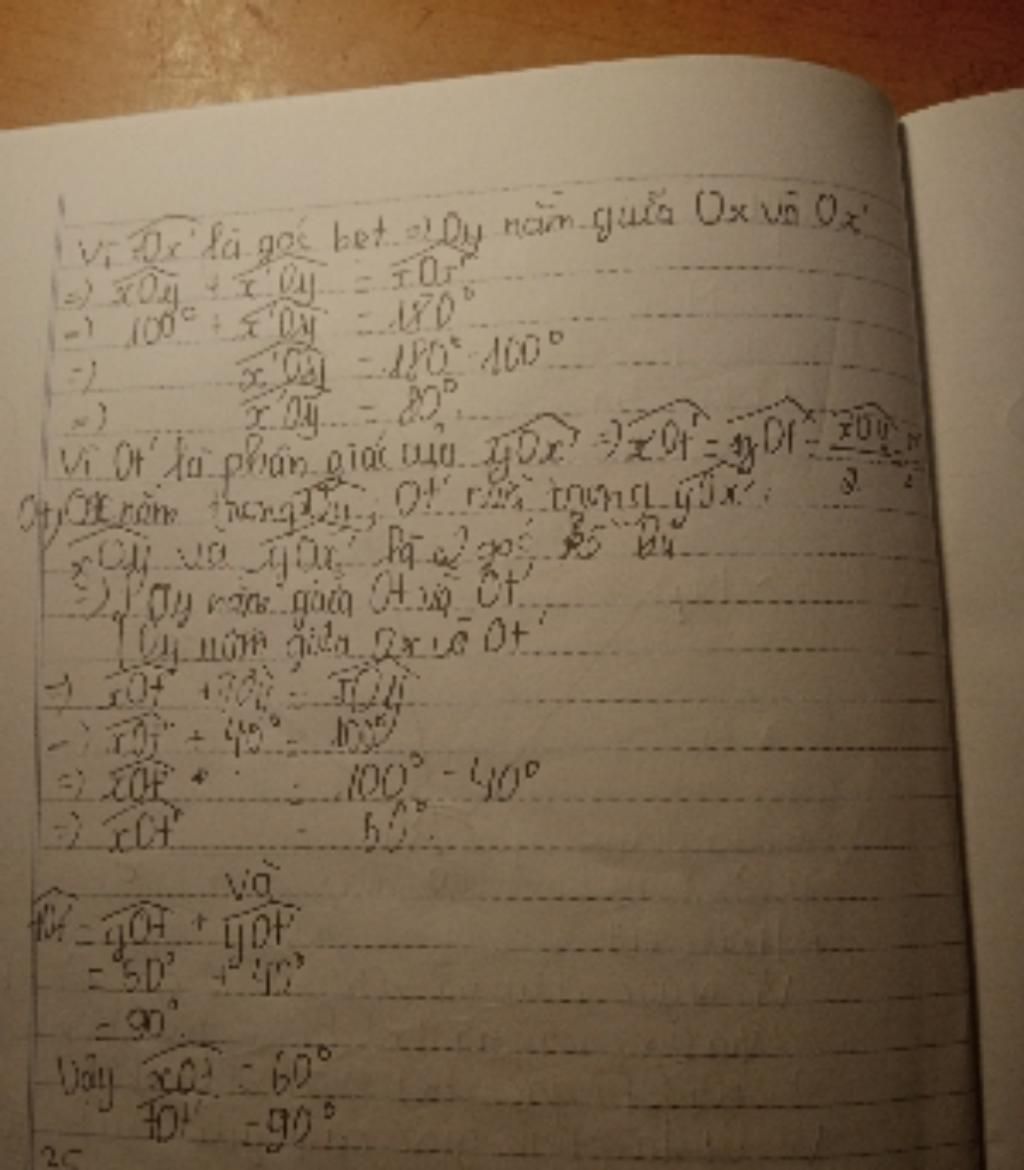 Vì xOx' là góc bẹt => Oy nằm giữa Ox và Ox'
=> xOy + x'Oy = xOx'
=> 100° + x'Oy = 180°
=> x'Oy = 180° - 100°
=> x'Oy = 80°
Vì Ot' là phân giác của yOx' => xOt' = yOt' = xOy
2
Ot, nằm trong xOy, Ot' nằm trong yOx'
xOy và yOx' là 2 góc kề bù
=> Oy nằm giữa Ot và Ot'
Oy nằm giữa Ox và Ot'
=> xOt' + = xOy
=> xOt' + 40° = 100°
=> xOt' = 100° - 40°
=> xOt' = 60°
và
tOt' = yOt + yOt'
= 50° + 40°
= 90°
Vậy xOt = 60°
tOt' = 90°